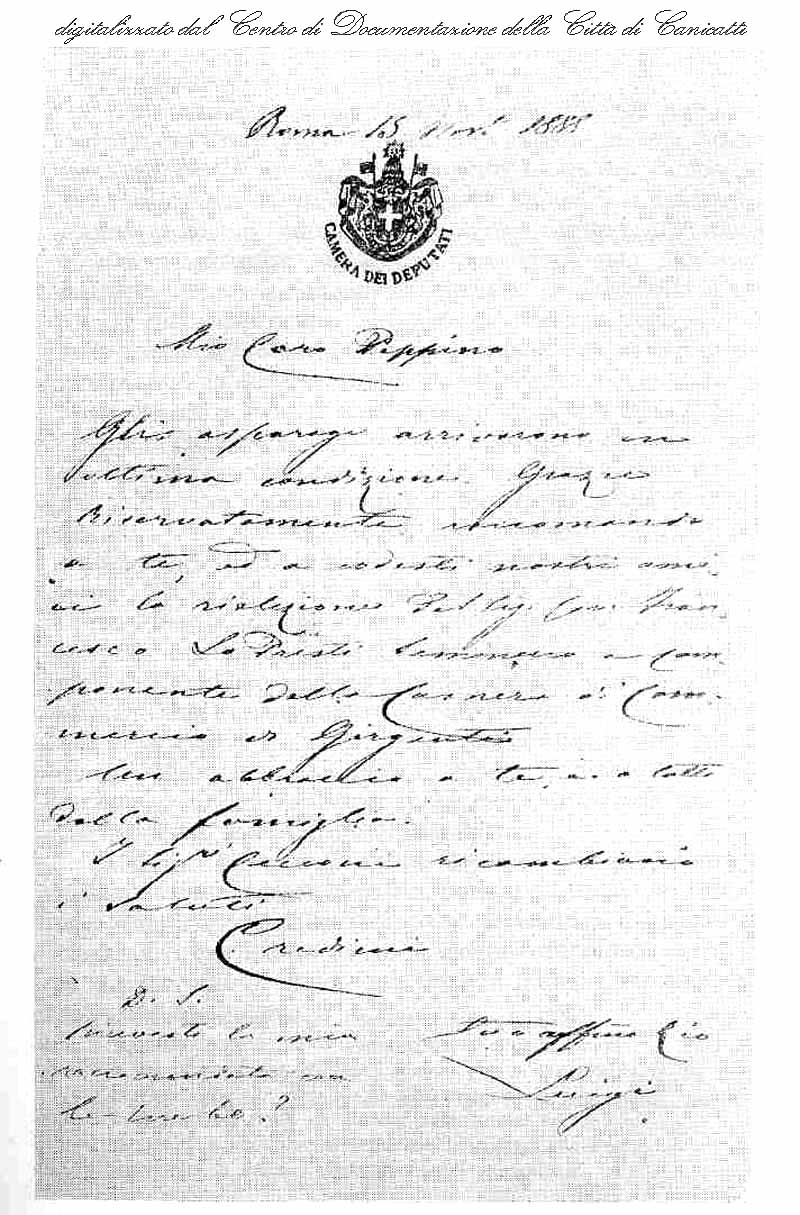 digitalizzato dal Centro di Documentazione della Città di Canicattì
Roma 15 Nov. 1888
CAMERA DEI DEPUTATI
Mio Caro Peppino
Gli asparagi arrivarono in
ottima condizione. Grazie
Riservatamente raccomando
a te, ed a codesti nostri ami-
ci la rielezione del Sig. Cav. Fran-
cesco Lo Presti Seminerio a com-
ponente della Camera di Com-
mercio di Girgenti
Un abbraccio a te, e a tutti
della famiglia.
I Sigri Cecconi ricambiano
i saluti
Credimi
P. S.
Riceveste la mia
raccomandata con
le
Tuo affmo Zio
Luigi